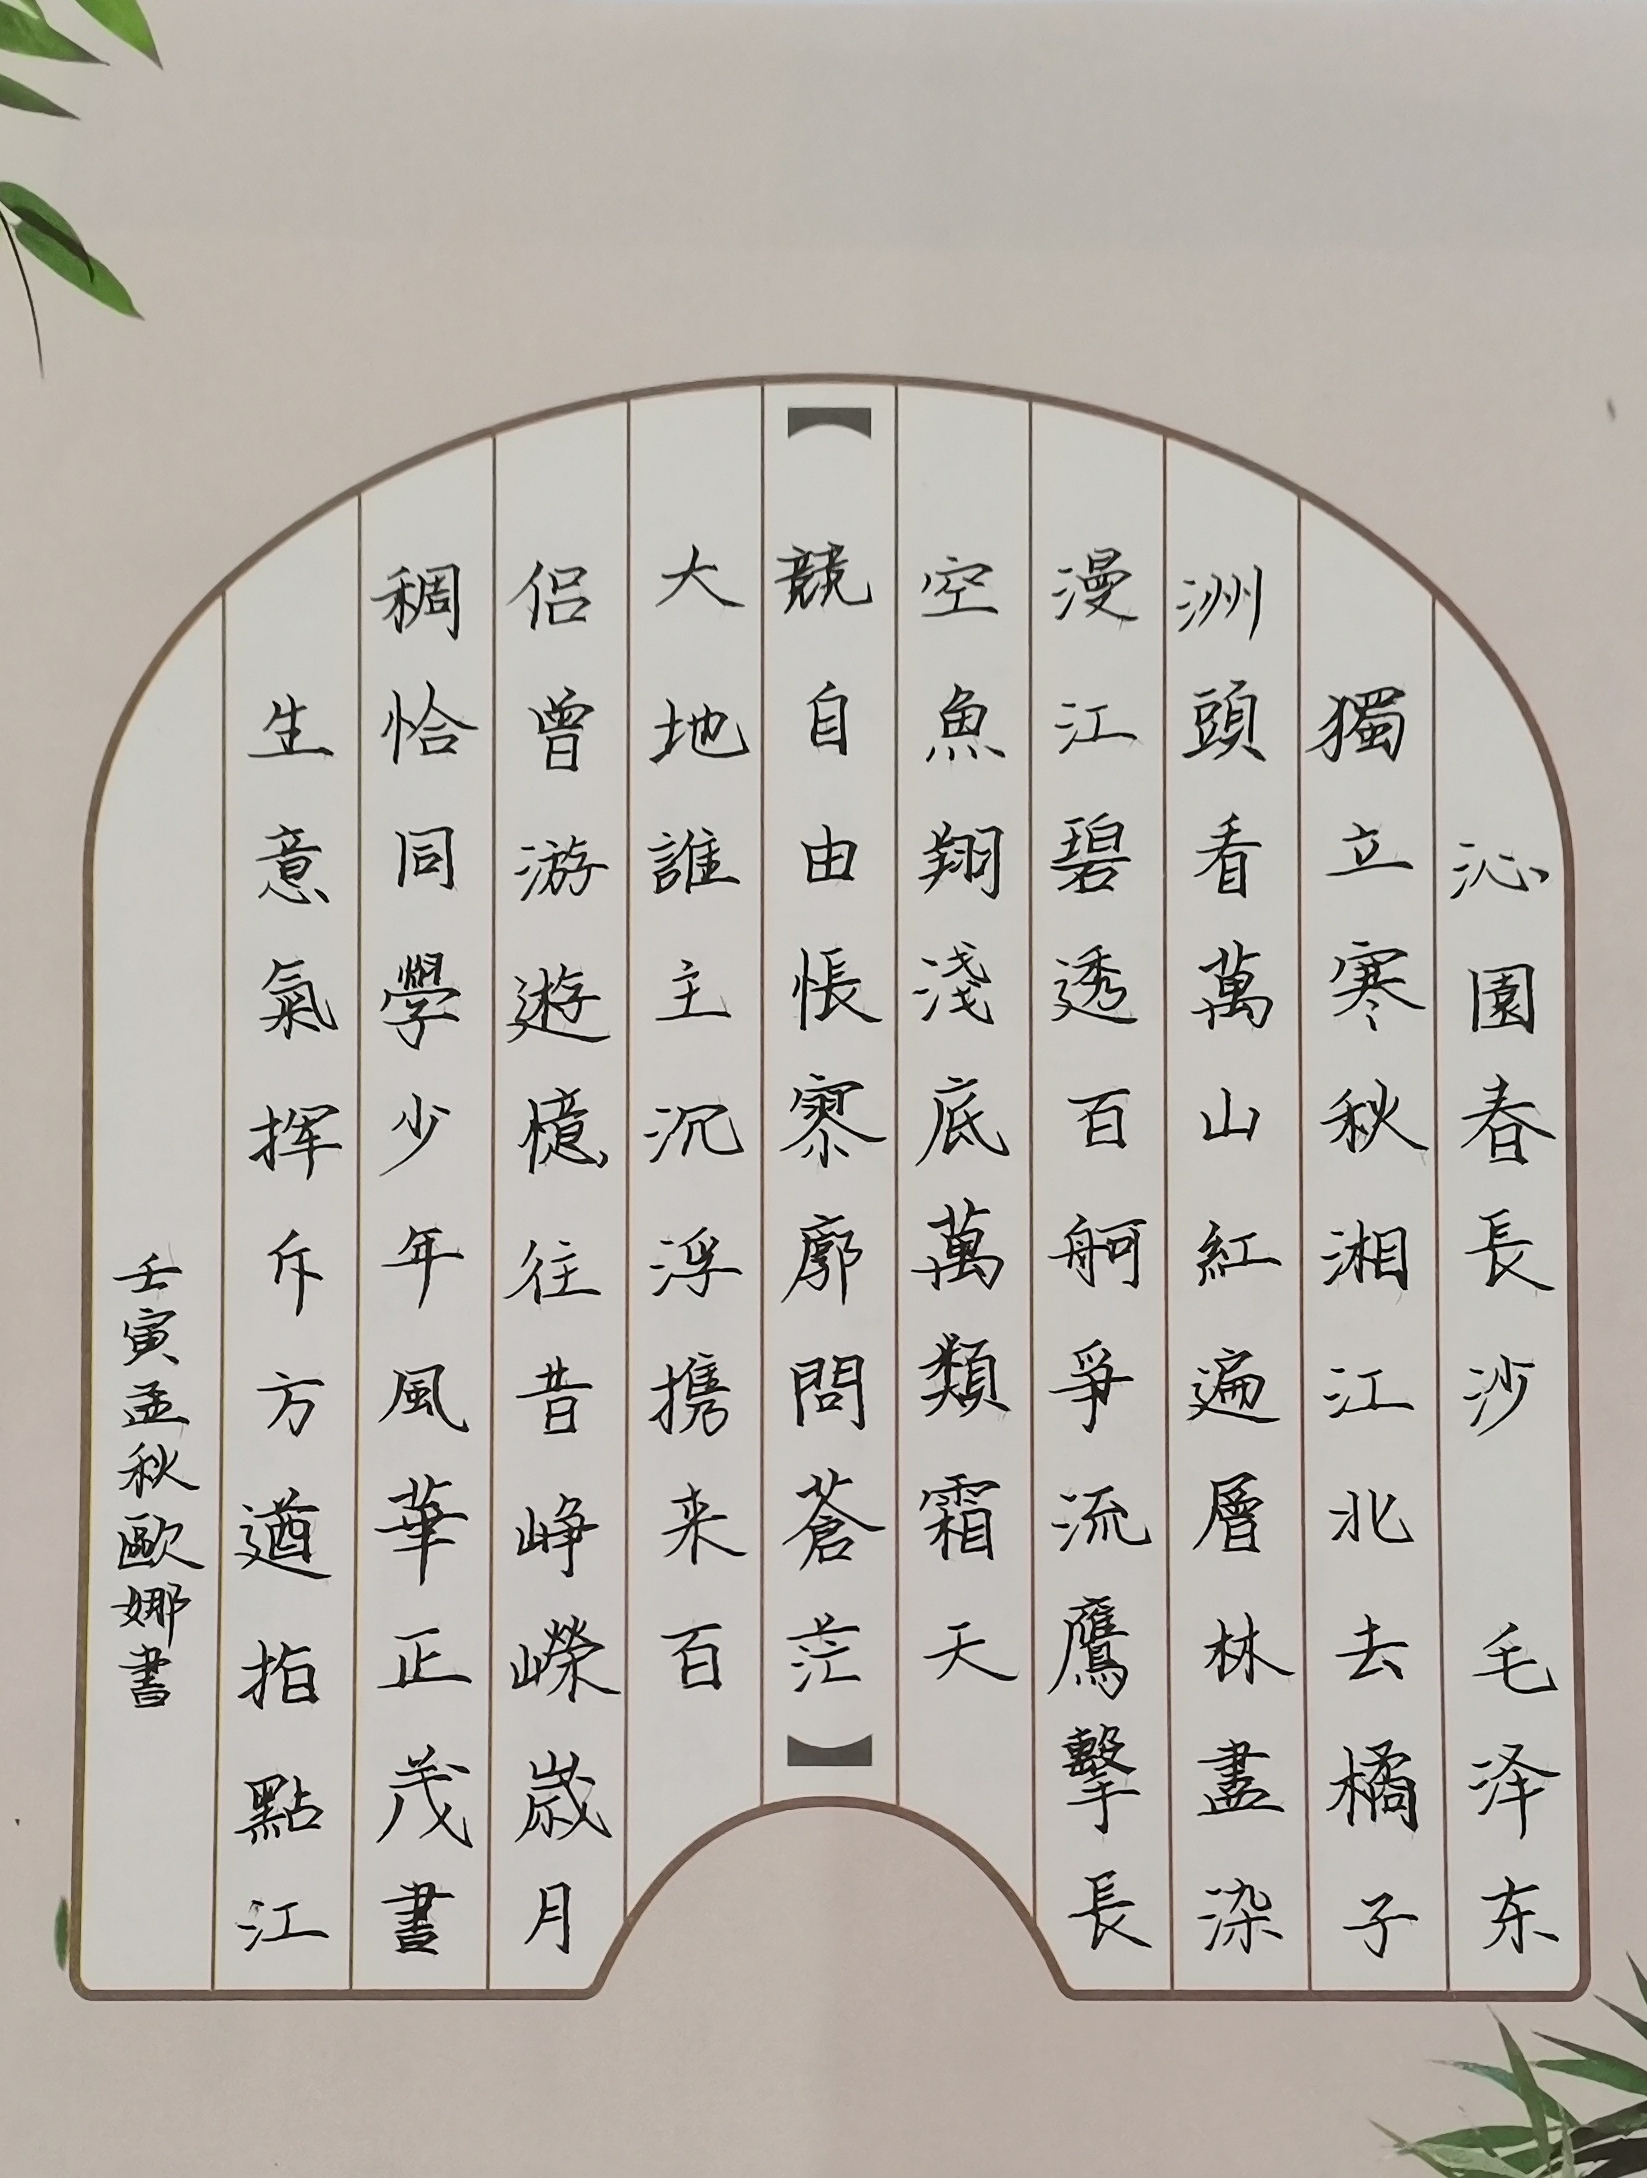 沁園春長沙 毛泽东
獨立寒秋湘江北去橘子
洲頭看萬山紅遍層林盡染
漫江碧透百舸爭流鷹擊長
空魚翔淺底萬類霜天
競自由悵寥廓問蒼茫
大地誰主沉浮携来百
侣曾游遊憶往昔峥嶸崴月
稠恰同學少年風華正茂書
生意氣挥斥方遒指點江
壬寅孟秋歐娜書